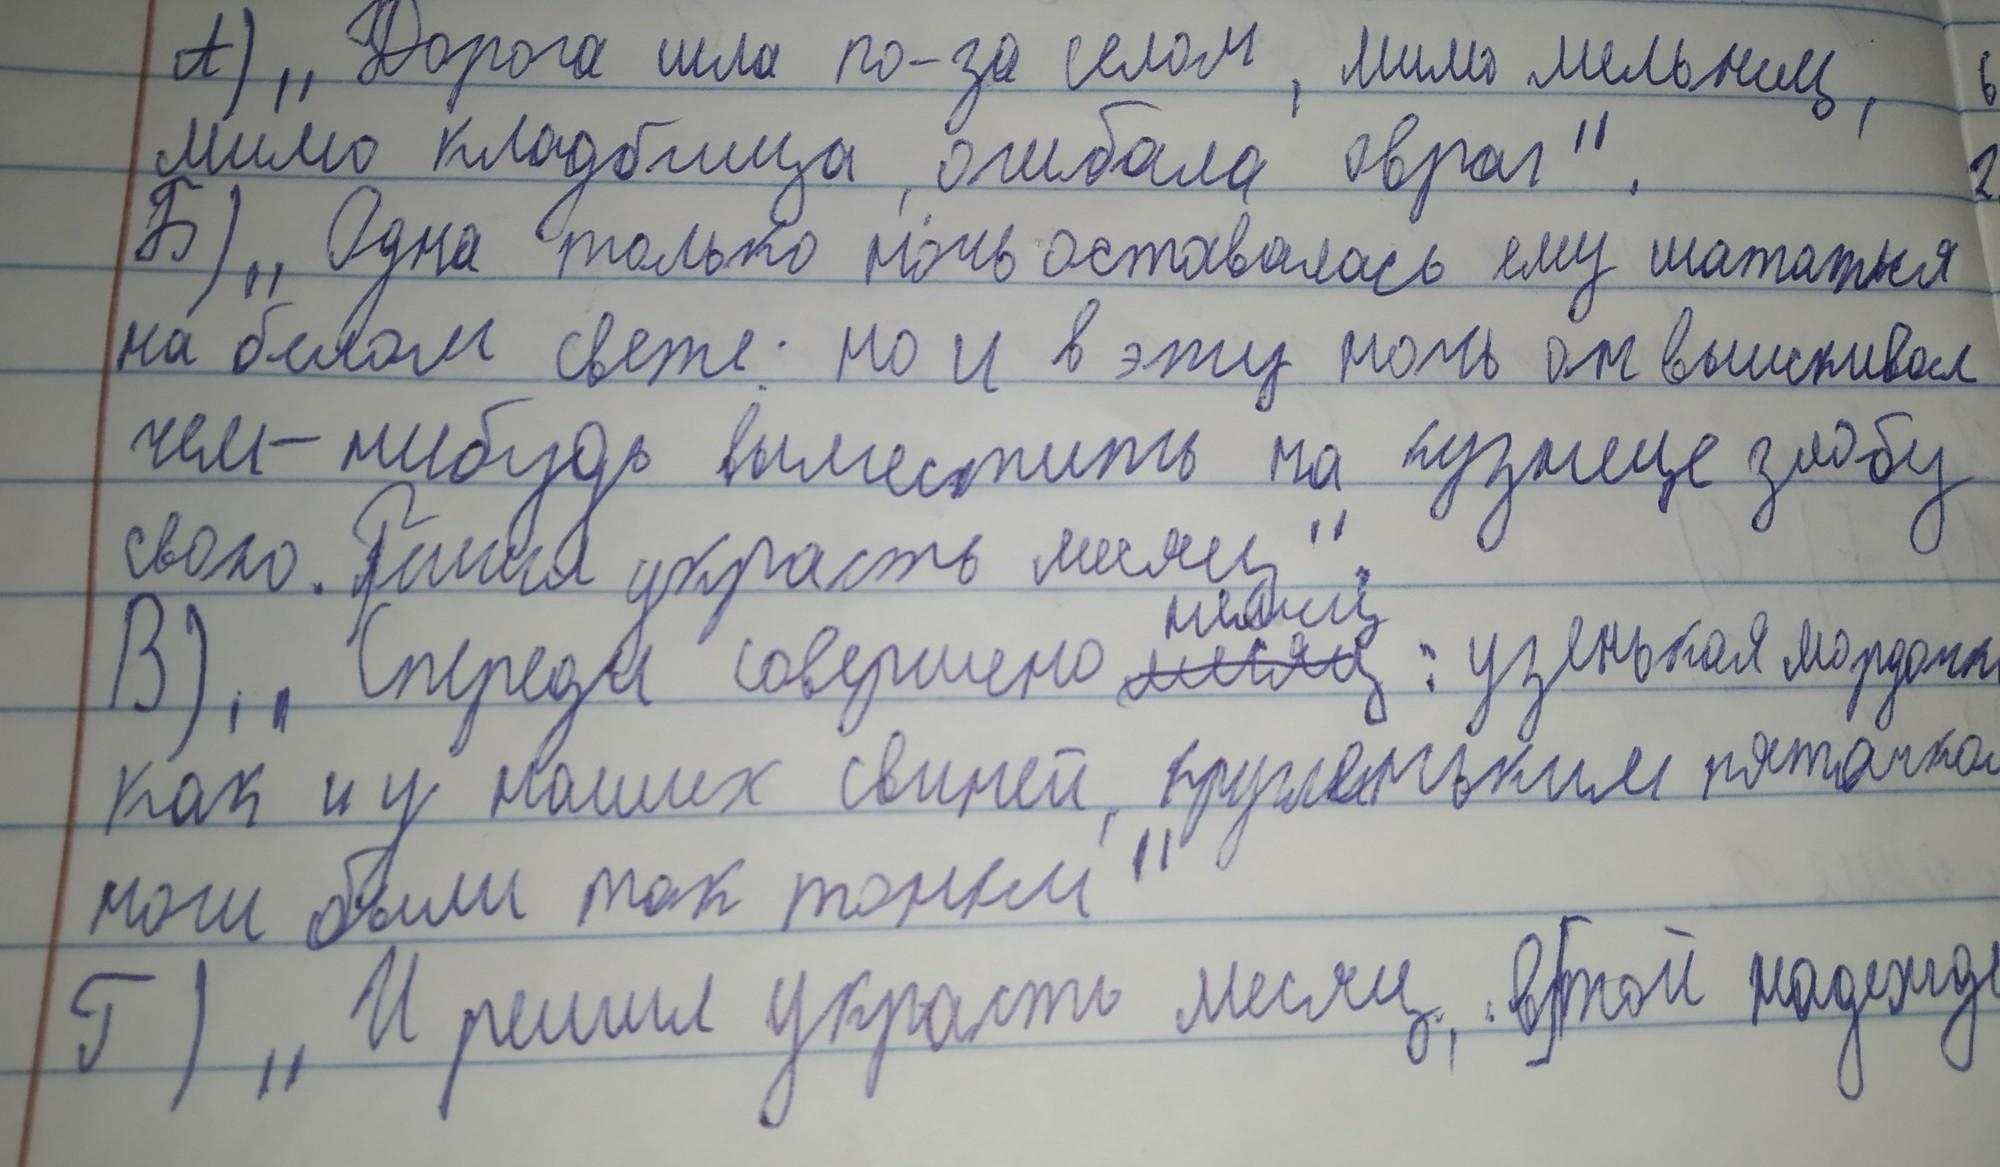 А) „Дорога шла по-за селом, мимо мельниц,
мимо кладбища, огибала овраг".
Б) „Одна только ночь оставалась ему шататься
на белом свете: но и в эту ночь он выискивал
чем-нибудь выместить на кузнеце злобу
свою. украсть месяц".
В) „Спереди совершено немец : узенькая мордочк
как и у наших свиней, кругленьким пятачком
ноги были так тонки"
Г) „И решил украсть месяц, в той надежде